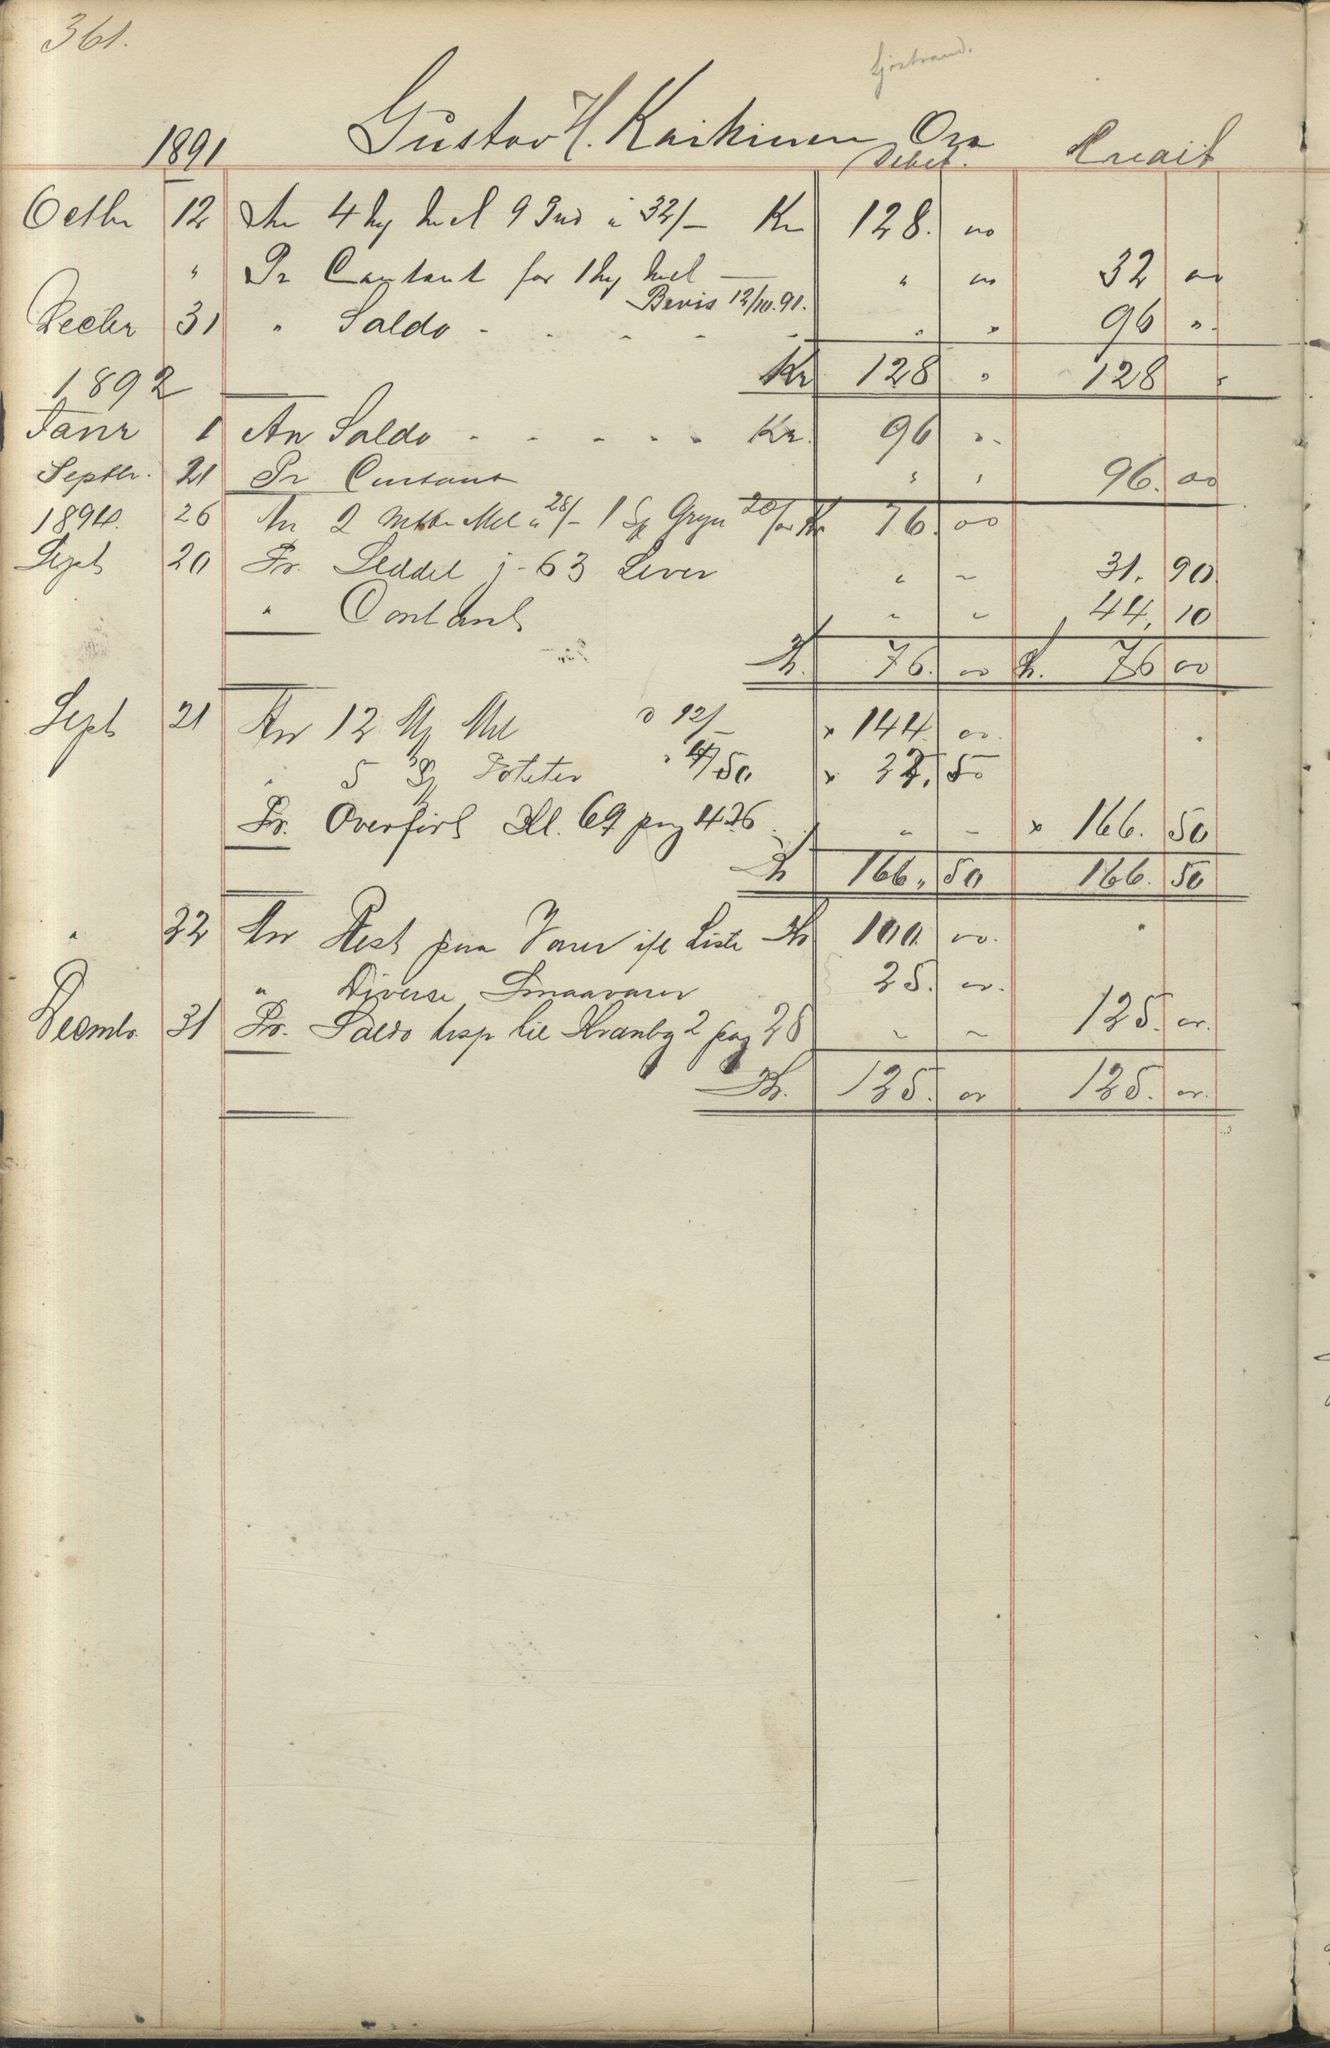 361.
Gustav H. Kaikunen Ora
1891 Debet. Kredit
Octbr 12 An 4 hg Mel 9 Pud à 32/- Kr 128. 00
" Pr Contant for 1 hg Mel " 00 32 00
Bevis 12/10.91.
Decbr 31 " Saldo - - - - - " " 96 "
1892 Kr 128 " 128 "
Janr 1 An Saldo - - - - - Kr. 96 "
Septbr. 21 Pr Contant " " 96. 00
1894. 26 An 2 Mel à 28/- 1 Sk Gryn 20/00 Kr 76. 00
Sept 20 Pr. Seddel j. 63 Lever " " 31. 90
" Contant " " 44, 10
Kr. 76. 00 Kr. 76 00
Sept 21 An 12 Mel à 12/- x 144. 00
" 5 Sk Poteter " 4/50 x 22. 50
Pr. Overført Kl. 69 pag 426 " " x 166. 50
Kr 166. 50 166. 50
" 22 An Rest paa Varer ifl Liste Kr 100. 00.
" Diverse Smaavarer 25. 00.
Decembr. 31 Pr. Saldo trsp til Kranbg 2 pag 28 " " 125. 00.
Kr. 125. 00 125. 00.